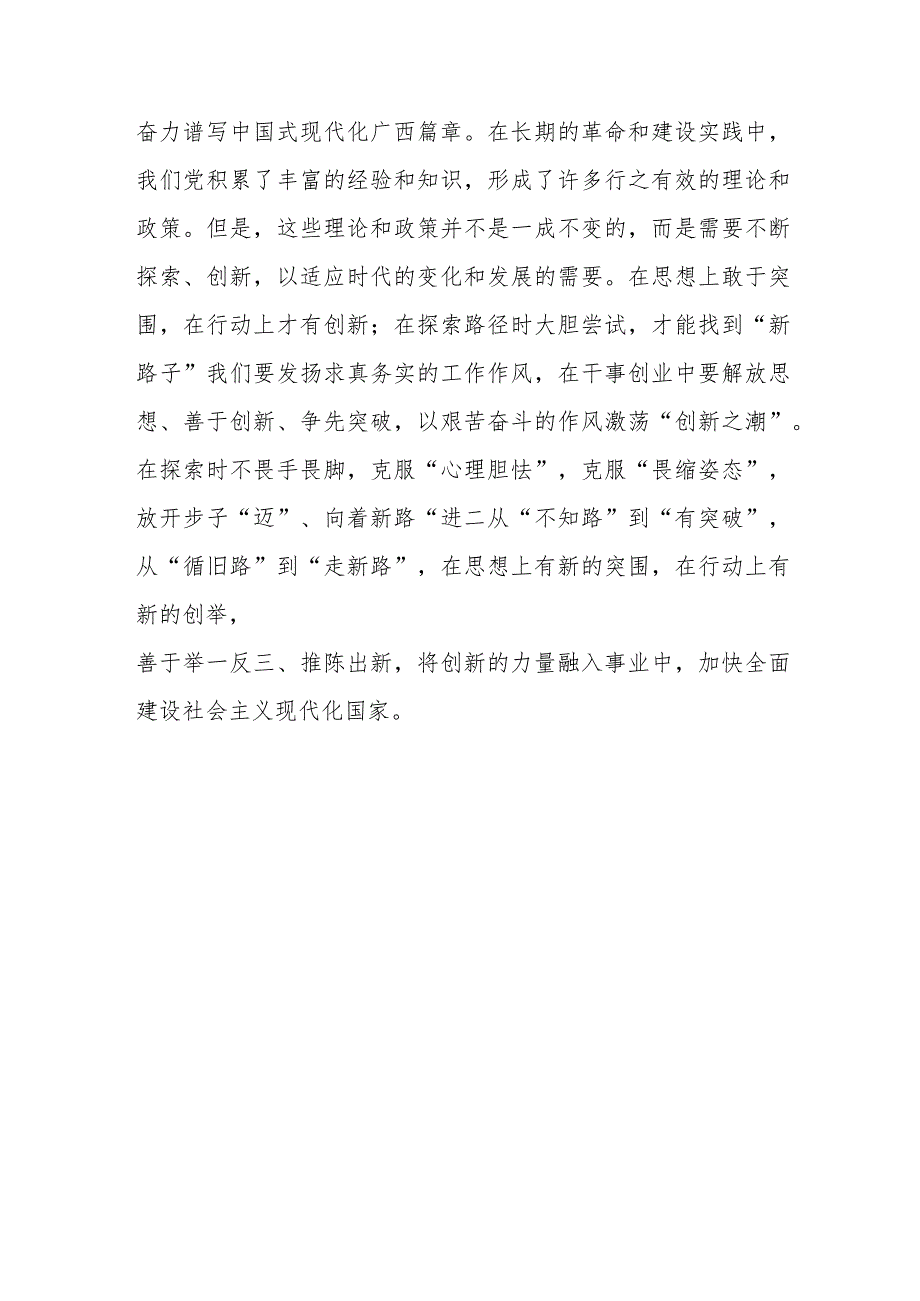 奋力谱写中国式现代化广西篇章。在长期的革命和建设实践中，
我们党积累了丰富的经验和知识，形成了许多行之有效的理论和
政策。但是，这些理论和政策并不是一成不变的，而是需要不断
探索、创新，以适应时代的变化和发展的需要。在思想上敢于突
围，在行动上才有创新；在探索路径时大胆尝试，才能找到“新
路子”我们要发扬求真务实的工作作风，在干事创业中要解放思
想、善于创新、争先突破，以艰苦奋斗的作风激荡“创新之潮”。
在探索时不畏手畏脚，克服“心理胆怯”，克服“畏缩姿态”，
放开步子“迈”、向着新路“进二从“不知路”到“有突破”，
从“循旧路”到“走新路”，在思想上有新的突围，在行动上有
新的创举，
善于举一反三、推陈出新，将创新的力量融入事业中，加快全面
建设社会主义现代化国家。